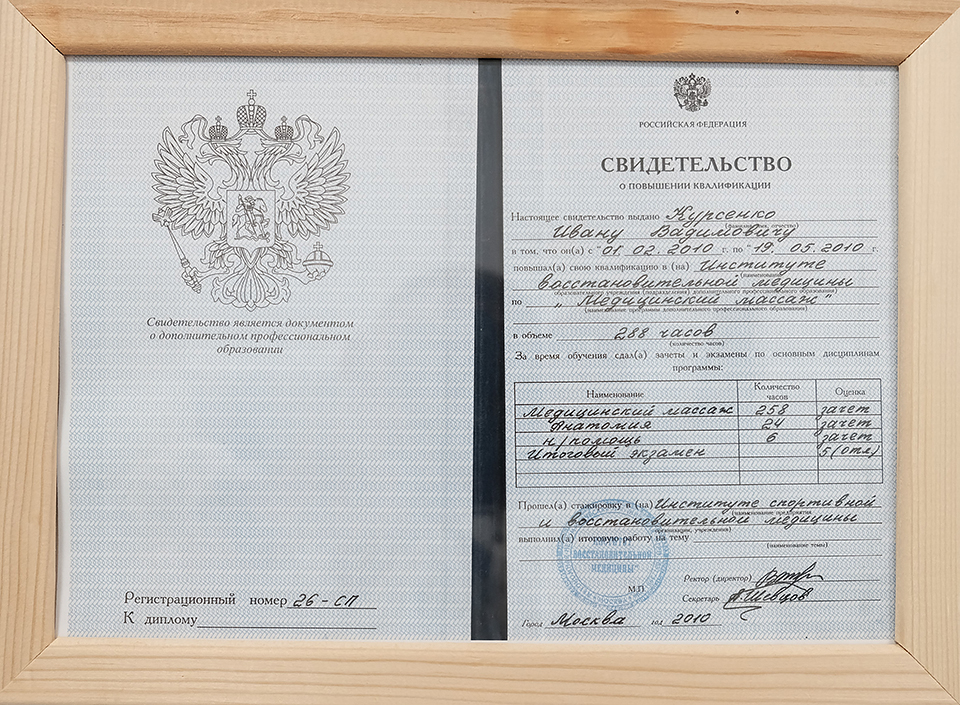 Свидетельство является документом
о дополнительном профессиональном
образовании
Регистрационный номер 26-СП
К диплому
РОССИЙСКАЯ ФЕДЕРАЦИЯ
СВИДЕТЕЛЬСТВО
О ПОВЫШЕНИИ КВАЛИФИКАЦИИ
Настоящее свидетельство выдано Курсенко
(фамилия, имя, отчество)
Ивану Вадимовичу
в том, что он(а) с "01. 02. 2010 г. по "19. 05. 2010 г.
повышал(а) свою квалификацию в (на) Институте
(наименование
восстановительной медицины
образовательного учреждения (подразделения) дополнительного профессионального образования)
по „Медицинский массаж"
(наименование программы дополнительного профессионального образования)
в объеме 288 часов
(количество часов)
За время обучения сдал(а) зачеты и экзамены по основным дисциплинам
программы:
Наименование Количество часов Оценка
Медицинский массаж 258 зачет
Анатомия 24 зачет
н/помощь 6 зачет
Итоговый экзамен 5(отл)
Прошел(а) стажировку в (на) Институте спортивной
(наименование предприятия
и восстановительной медицины
организации, учреждения)
выполнил(а) итоговую работу на тему
(наименование темы)
ИНСТИТУТ
ВОССТАНОВИТЕЛЬНОЙ
МЕДИЦИНЫ"
М.П.
Ректор (директор)
Секретарь А.Шевцов
Город Москва год 2010